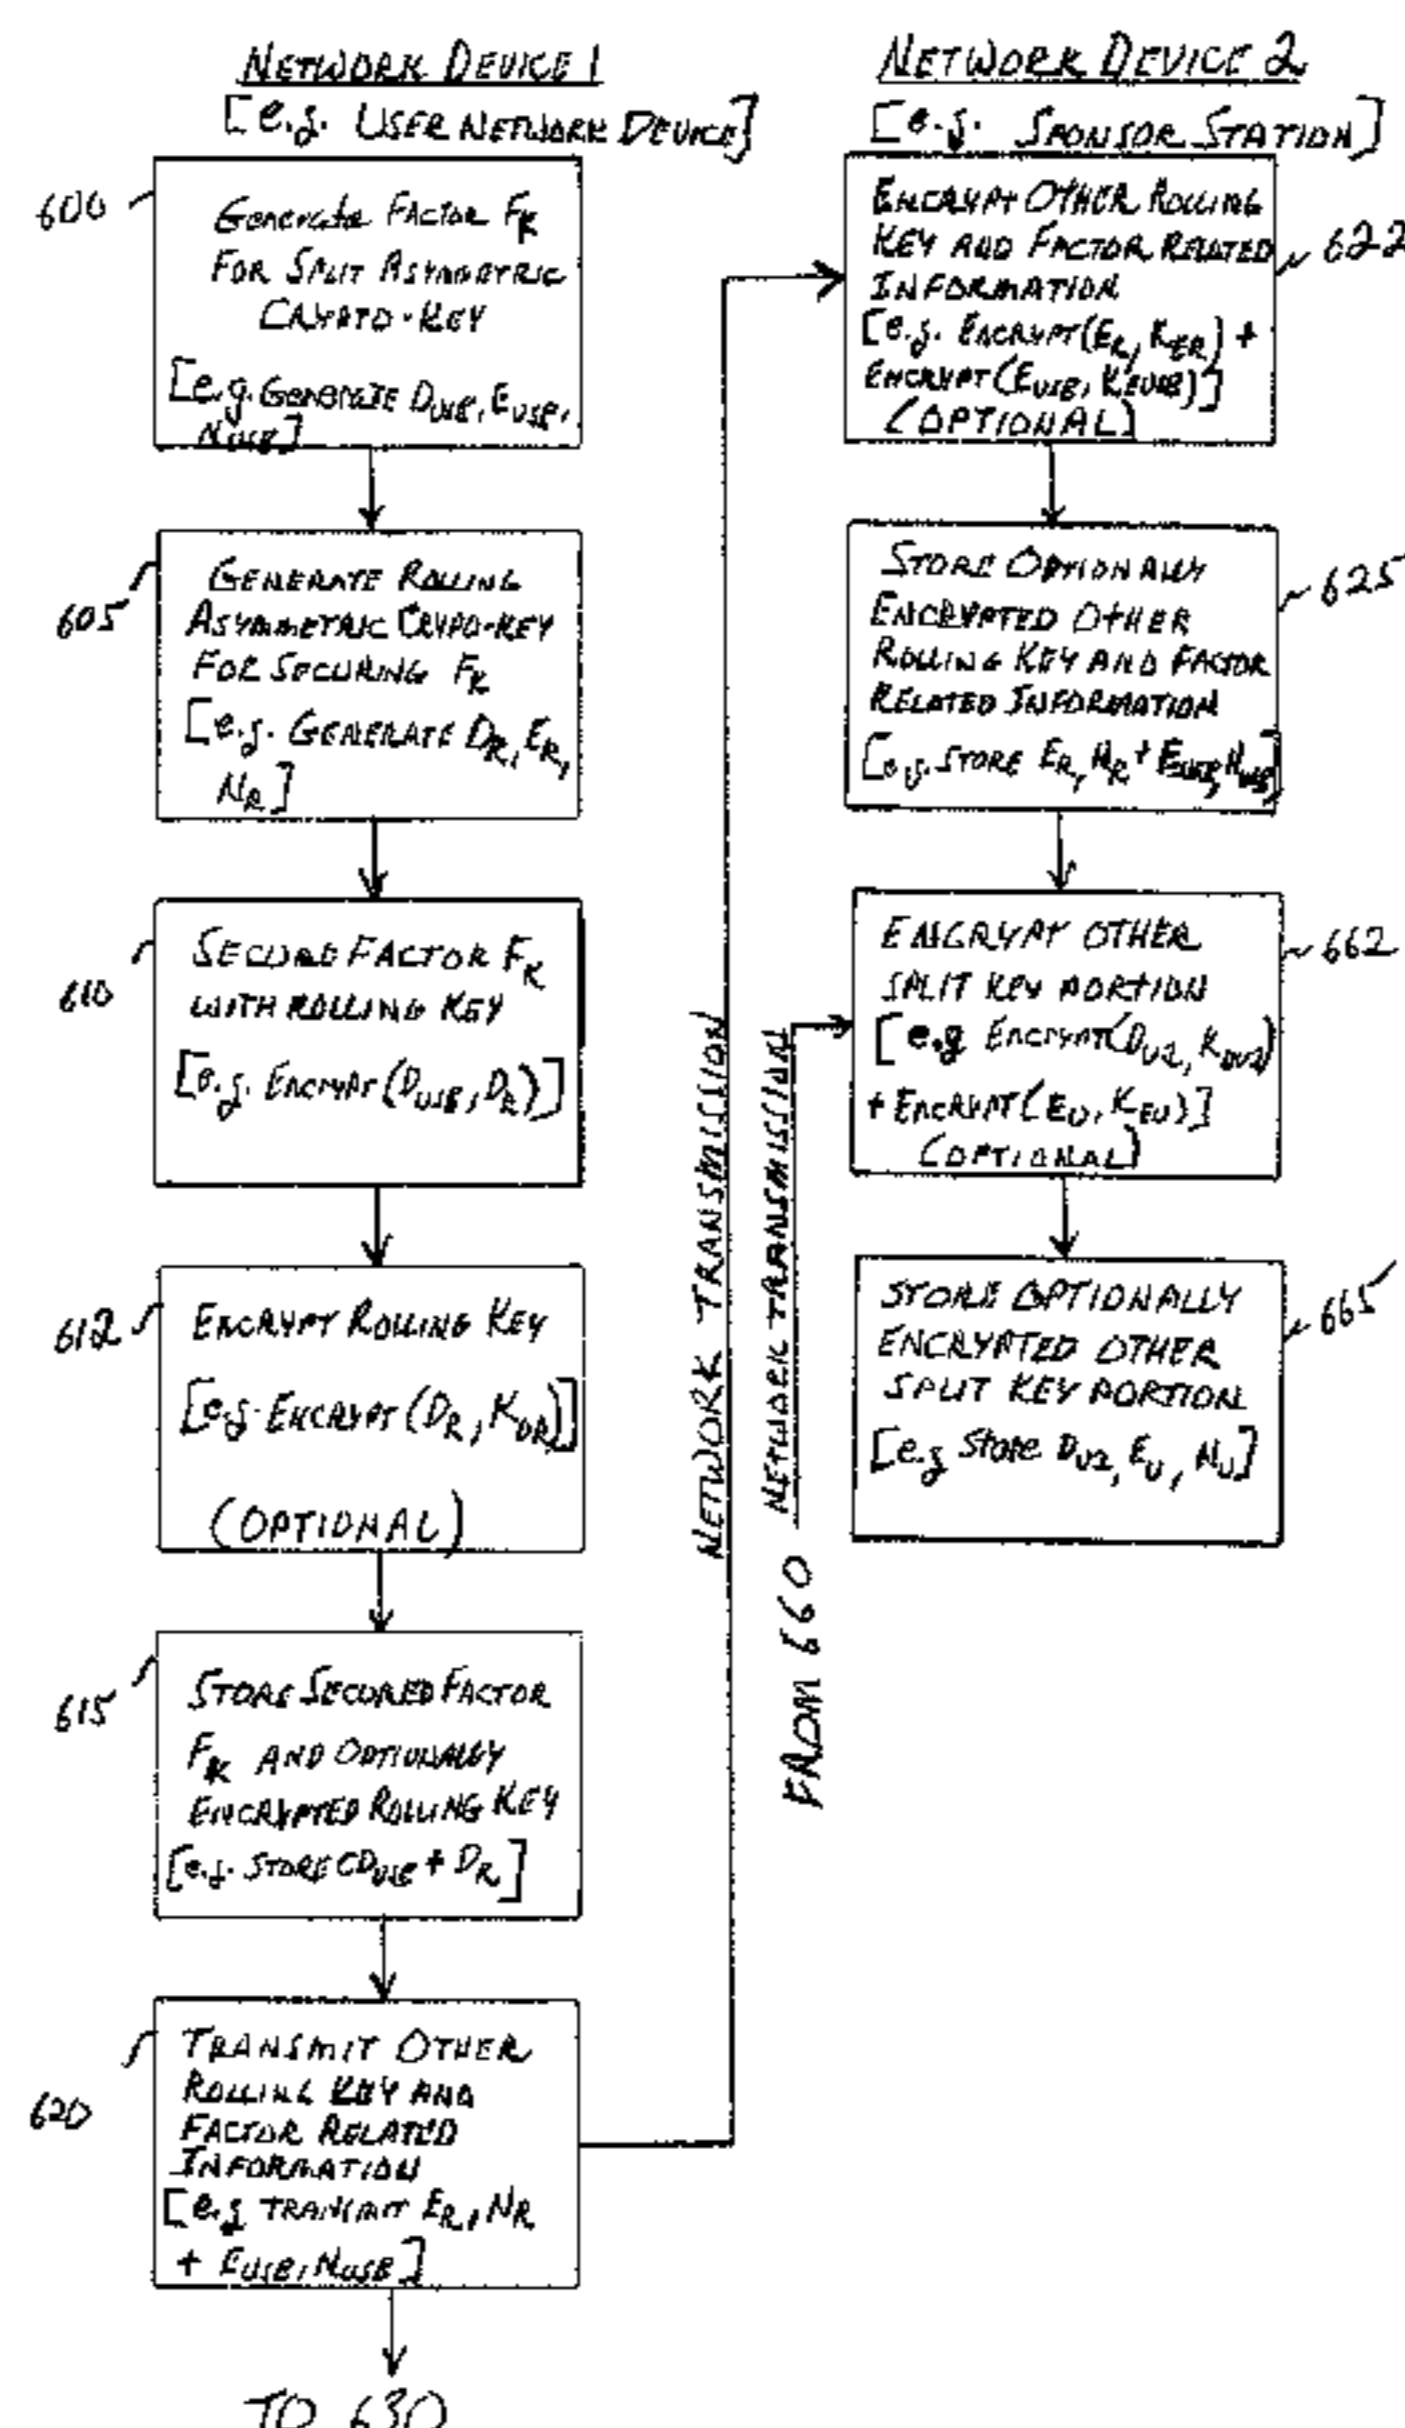 NETWORK DEVICE 1
[e.g. USER NETWORK DEVICE]
600
Generate FACTOR FK
FOR SPLIT ASYMMETRIC
CRYPTO-KEY
[e.g. GENERATE DUSB, EUSB,
NUSB]
605
GENERATE ROLLING
ASYMMETRIC CRYPO-KEY
FOR SECURING FK
[e.g. GENERATE DR, ER,
NR]
610
SECURE FACTOR FK
WITH ROLLING KEY
[e.g. ENCRYPT (DUSB, DR)]
612
ENCRYPT ROLLING KEY
[e.g. ENCRYPT (DR, KDR)]
(OPTIONAL)
615
STORE SECURED FACTOR
FK AND OPTIONALLY
ENCRYPTED ROLLING KEY
[e.g. STORE CDUSB + DR]
620
TRANSMIT OTHER
ROLLING KEY AND
FACTOR RELATED
INFORMATION
[e.g TRANSMIT ER, NR
+ EUSB, NUSB]
TO 630
NETWORK TRANSMISSION
FROM 660 NETWORK TRANSMISSION
NETWORK DEVICE 2
[e.g. SPONSOR STATION]
622
ENCRYPT OTHER ROLLING
KEY AND FACTOR RELATED
INFORMATION
[e.g. ENCRYPT(ER, KER) +
ENCRYPT(EUSB, KEUSB)]
(OPTIONAL)
625
STORE OPTIONALLY
ENCRYPTED OTHER
ROLLING KEY AND FACTOR
RELATED INFORMATION
[e.g. STORE ER, NR + EUSB, NUSB]
662
ENCRYPT OTHER
SPLIT KEY PORTION
[e.g ENCRYPT(DU2, KDU2)
+ ENCRYPT(EU, KEU)]
(OPTIONAL)
665
STORE OPTIONALLY
ENCRYPTED OTHER
SPLIT KEY PORTION
[e.g Store DU2, EU, NU]